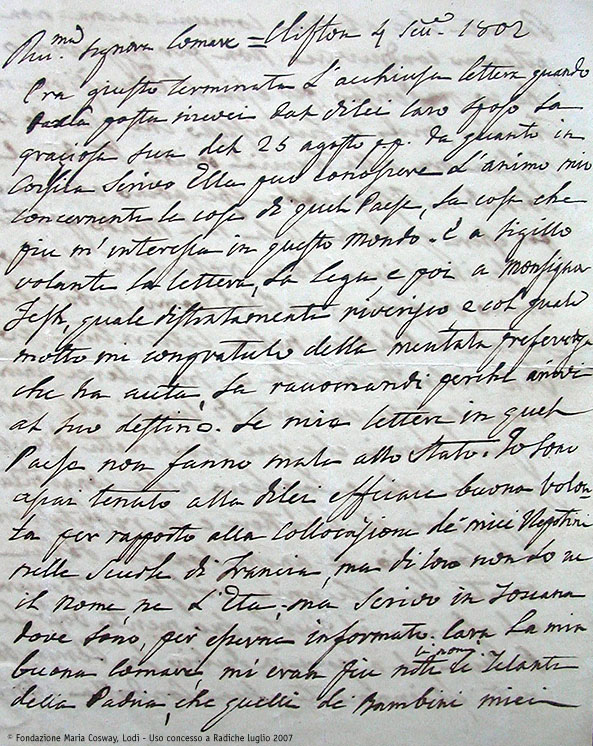 Riv.ma Signora Comare = Clifton 4 Sett.e 1802
Era giusto terminata l'acchiusa lettera quando
dalla posta ricevei dal dilei caro sposo la
graciosa sua del 25 agosto pp. da quanto in
Corsica scrivo Ella può conoscere l'animo mio
concernente le cose di quel Paese, la cosa che
più m'interessa in questo mondo. È a sigillo
volante la lettera, la legga, e poi a Monsignor
Fesh, quale distintamente riverisco e col quale
molto mi congratulo della meritata preferenza
che ha avuta, la raccomandi perche arrivi
al suo destino. Le mie lettere in quel
Paese non fanno male allo Stato. Io sono
assai tenuto alla dilei efficace buona volon
ta per rapporto alla collocazione de' miei Nepotini
nelle Scuole di Francia, ma di loro non so ne
il nome, ne l'Età, ma scrivo in Toscana
dove sono, per esserne informato. Cara La mia
buona Comare, mi eran più noti i nomi de Zelanti
della Patria, che quelli de Bambini miei
© Fondazione Maria Cosway, Lodi - Uso concesso a Radiche luglio 2007